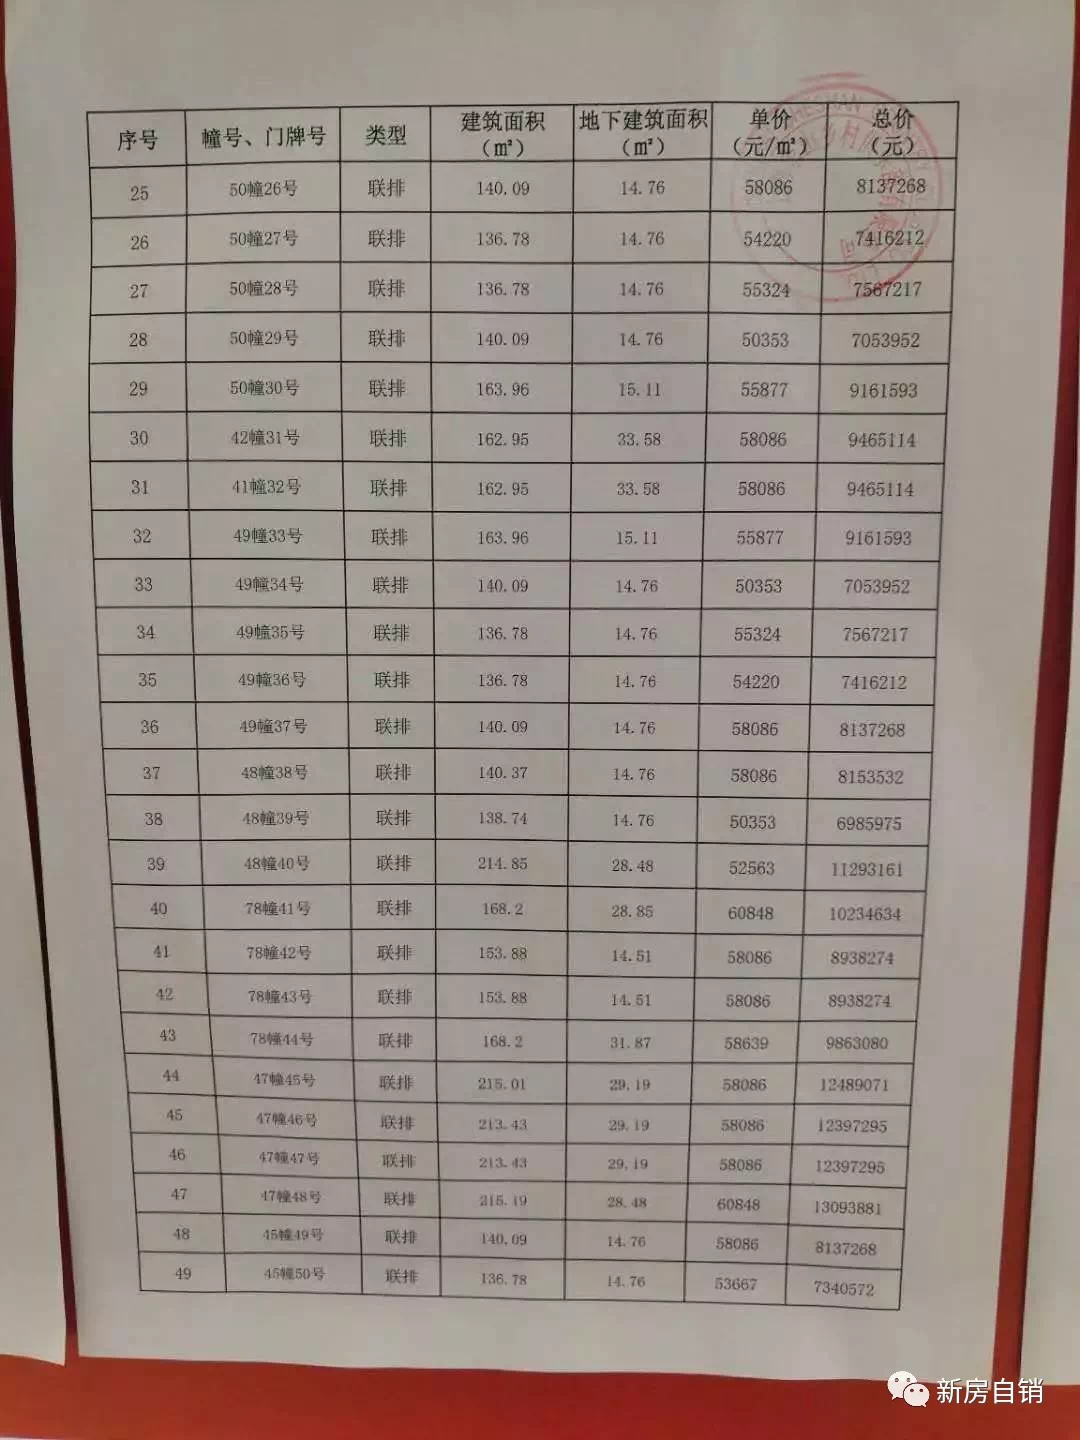 序号 幢号、门牌号 类型 建筑面积（㎡） 地下建筑面积（㎡） 单价（元/㎡） 总价（元）
25 50幢26号 联排 140.09 14.76 58086 8137268
26 50幢27号 联排 136.78 14.76 54220 7416212
27 50幢28号 联排 136.78 14.76 55324 7567217
28 50幢29号 联排 140.09 14.76 50353 7053952
29 50幢30号 联排 163.96 15.11 55877 9161593
30 42幢31号 联排 162.95 33.58 58086 9465114
31 41幢32号 联排 162.95 33.58 58086 9465114
32 49幢33号 联排 163.96 15.11 55877 9161593
33 49幢34号 联排 140.09 14.76 50353 7053952
34 49幢35号 联排 136.78 14.76 55324 7567217
35 49幢36号 联排 136.78 14.76 54220 7416212
36 49幢37号 联排 140.09 14.76 58086 8137268
37 48幢38号 联排 140.37 14.76 58086 8153532
38 48幢39号 联排 138.74 14.76 50353 6985975
39 48幢40号 联排 214.85 28.48 52563 11293161
40 78幢41号 联排 168.2 28.85 60848 10234634
41 78幢42号 联排 153.88 14.51 58086 8938274
42 78幢43号 联排 153.88 14.51 58086 8938274
43 78幢44号 联排 168.2 31.87 58639 9863080
44 47幢45号 联排 215.01 29.19 58086 12489071
45 47幢46号 联排 213.43 29.19 58086 12397295
46 47幢47号 联排 213.43 29.19 58086 12397295
47 47幢48号 联排 215.19 28.48 60848 13093881
48 45幢49号 联排 140.09 14.76 58086 8137268
49 45幢50号 联排 136.78 14.76 53667 7340572
新房自销